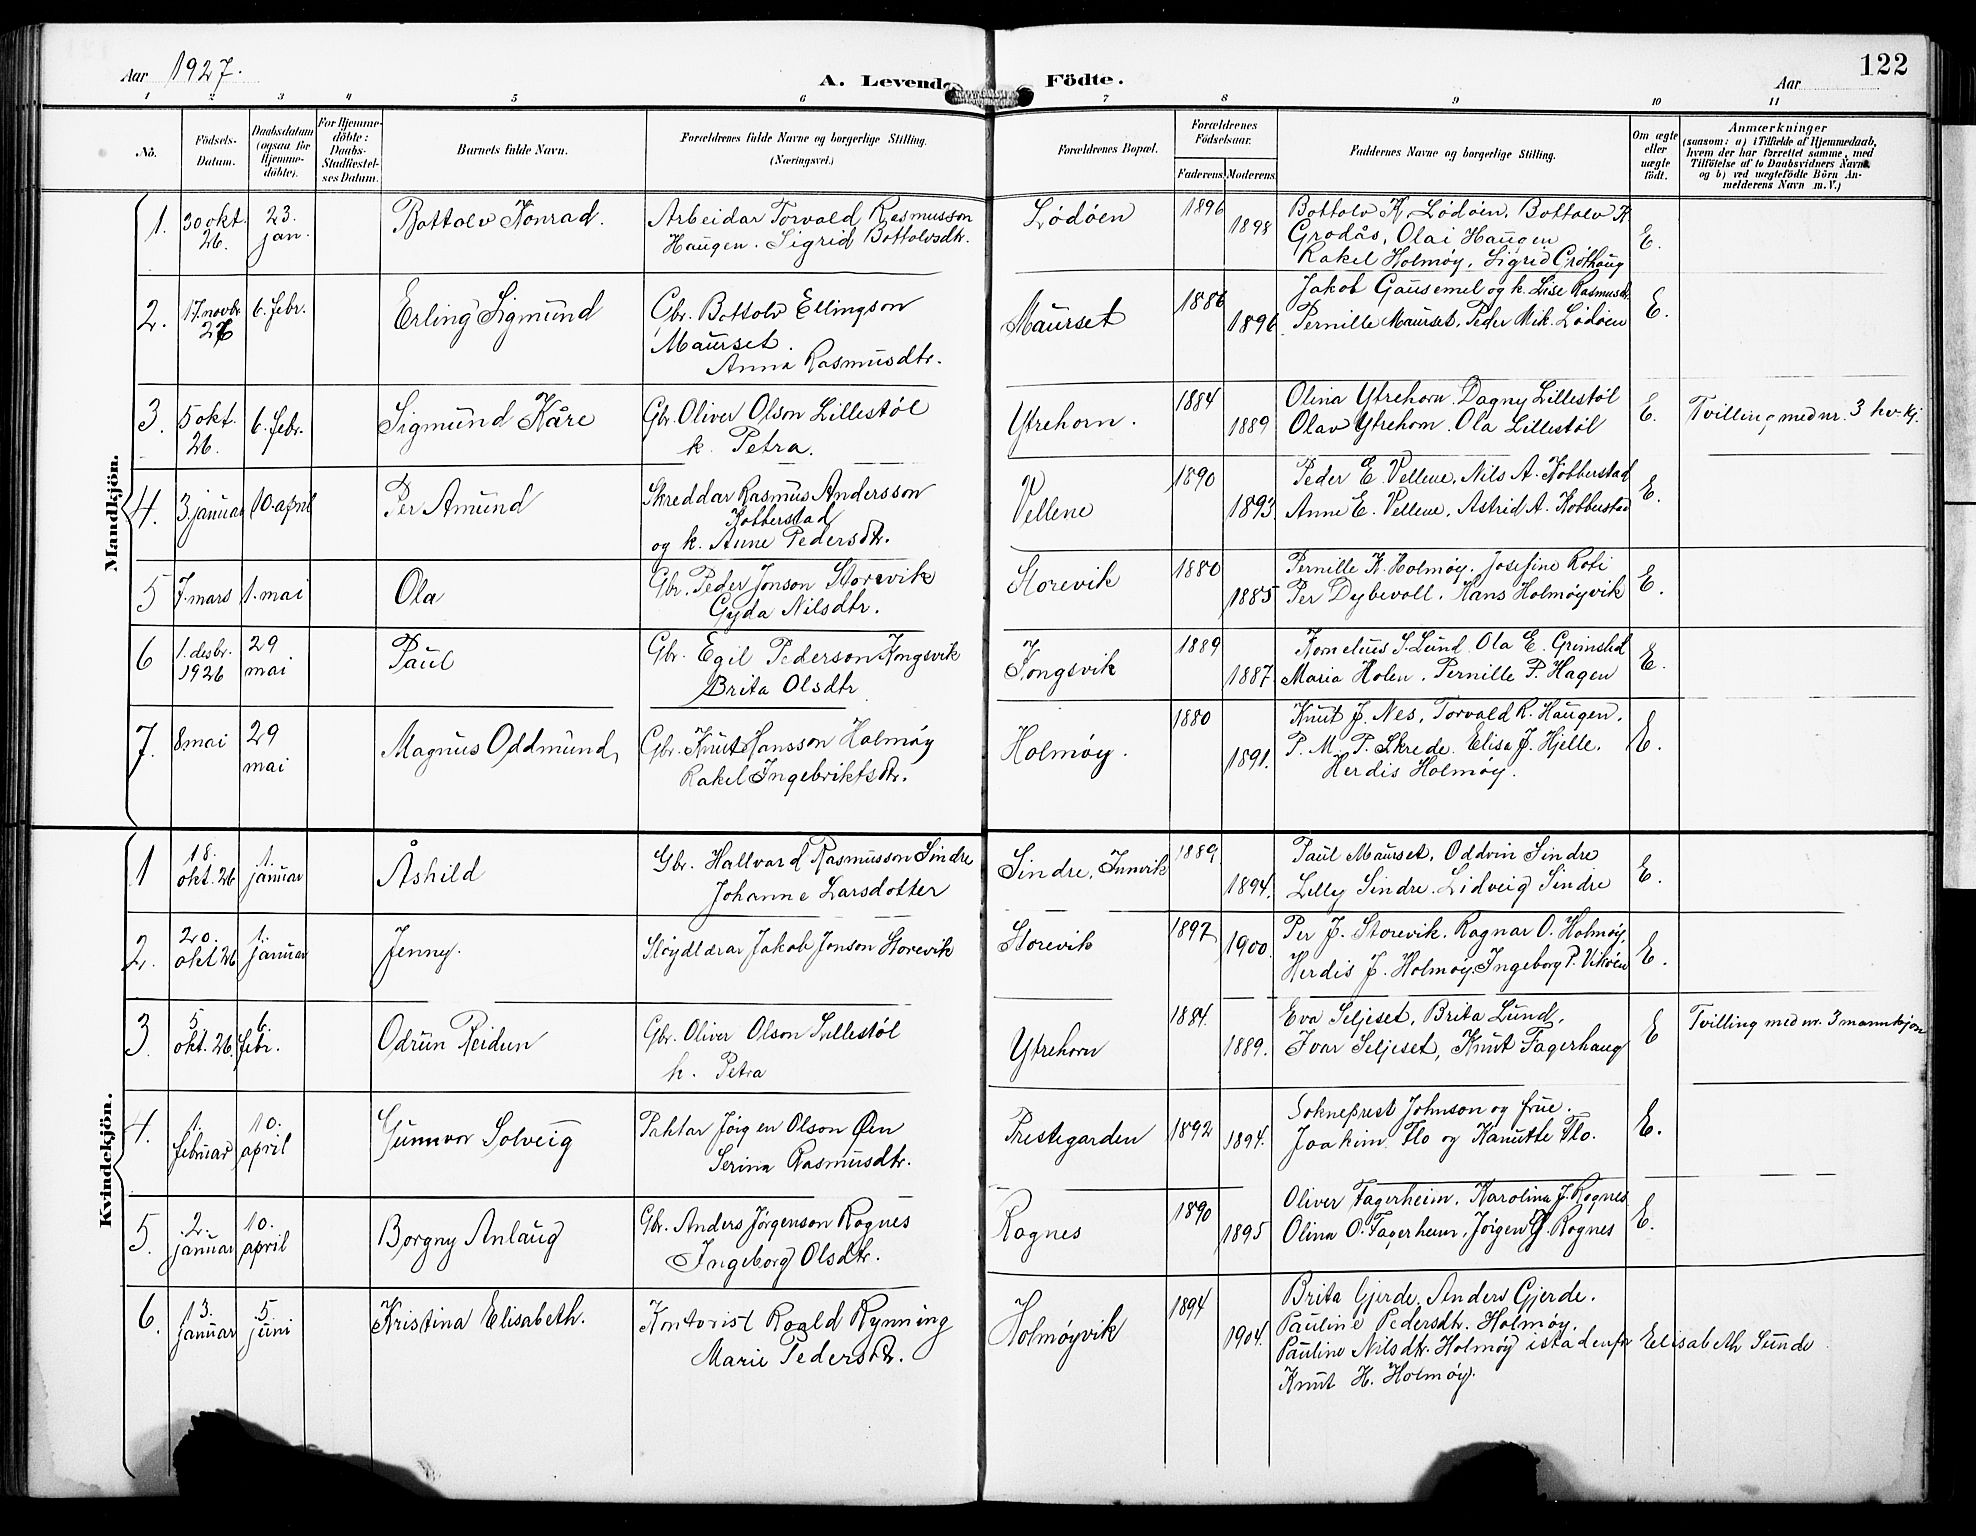 Aar 1927.
A. Levende Födte.
Aar
122
1 2 3 4 5 6 7 8 9 10 11
No.
Födsels-
Datum.
Daabsdatum
(ogsaa for
Hjemme-
döbte).
For Hjemme-
döbte:
Daabs-
Stadfæstel-
ses Datum.
Barnets fulde Navn.
Forældrenes fulde Navne og borgerlige Stilling.
(Næringsvei.)
Forældrenes Bopæl.
Forældrenes
Födselsaar.
Faderens Moderens
Faddernes Navne og borgerlige Stilling.
Om ægte
eller
uægte
födt.
Anmærkninger
(saasom: a) i Tilfælde af Hjemmedaab,
hvem der har forrettet samme, med
Tilföielse af to Daabsvidners Navne
og b) ved uægtefödte Börn An-
melderens Navn m. V.)
Mandkjön.
1. 30 okt. 26. 23. jan. Bottolv Konrad. Arbeidar Torvald Rasmusson
Haugen. Sigrid Bottolvsdtr. Lödöen 1896 1898 Bottolv K. Lödöen, Bottolv K
Grodås, Olai Haugen
Rakel Holmöy, Sigrid Gröthaug E.
2. 17. novbr. 26 6. febr. Erling Sigmund Gbr. Bottolv Ellingson
Maurset.
Anna Rasmusdtr. Maurset 1886 1896 Jakob Gausemel og k. Lise Rasmusdtr.
Pernille Maurset, Peder Mik. Lödöen E.
3. 5 okt. 26. 6. febr. Sigmund Kåre Gbr. Oliver Olson Lillestöl
k. Petra. Ytrehorn. 1884 1889 Olina Ytrehorn. Dagny Lillestöl
Olav Ytrehorn. Ola Lillestöl E. Tvilling med nr. 3 kv. kj.
4. 3. januar 10. april Per Amund Skreddar Rasmus Andersson
Kobberstad
og k. Anne Pedersdtr. Vellene 1890 1893 Peder E. Vellene, Nils A. Kobberstad
Anne E. Vellene, Astrid A. Kobberstad E.
5 7. mars 1. mai Ola Gbr. Peder Jonson Storevik
Gyda Nilsdtr. Storevik 1880 1885 Pernille K. Holmöy. Josefine Roti
Per Dybevoll. Hans Holmöyvik E.
6 1. desbr. 1926 29 mai Paul Gbr. Egil Pederson Kongsvik
Brita Olsdtr Kongsvik 1889 1887. Kornelius S. Lund. Ola E. Grimstad
Maria Holen. Pernille P. Hagen E.
7. 8 mai 29 mai Magnus Oddmund Gbr. Knut Hansson Holmöy
Rakel Ingebriktsdtr. Holmöy. 1880 1891. Knut J. Nes, Torvald R. Haugen.
P. M. P. Skrede. Elisa J. Hjelle.
Herdis Holmöy. E.
Kvindekjön.
1 18. okt. 26 1. januar Åshild Gbr. Hallvard Rasmusson Sindre
Johanne Larsdotter Sindre, Innvik 1889 1894. Paul Maurset, Oddvin Sindre
Lilly Sindre. Lidveig Sindre E.
2. 20. okt 26 1. januar Jenny. Slöydlærar Jakob Jonson Storevik Storevik 1897 1900. Per J. Storevik. Ragnar O. Holmöy,
Herdis J. Holmöy. Ingeborg P. Viköen E.
3. 5. okt. 26 6. febr. Odrun Reidun Gbr. Oliver Olson Lillestöl
k. Petra Ytrehorn 1884. 1889. Eva Seljeset, Brita Lund,
Ivar Seljeset, Knut Fagerhaug E Tvilling med nr. 3 mannkjön
4. 1. februar 10. april Gunnvor Solveig Paktar Jörgen Olson Øen
Serina Rasmusdtr. Prestegarden 1892 1894. Sokneprest Johnson og frue.
Joakim Flo og Kanutte Flo. E.
5. 2. januar 10. april Borgny Anlaug Gbr. Anders Jörgenson Rognes
Ingeborg Olsdtr. Rognes 1890 1895 Oliver Fagerheim. Karolina J. Rognes
Olina O. Fagerheim, Jörgen J. Rognes E.
6. 13. januar 5 juni Kristina Elisabeth. Kontorist Roald Rynning
Marie Pedersdtr. Holmöyvik 1894 1904. Brita Gjerde. Anders Gjerde.
Pauline Pedersdtr. Holmöy.
Pauline Nilsdtr. Holmöy istadenfor Elisabeth Sunde
Knut H. Holmöy.